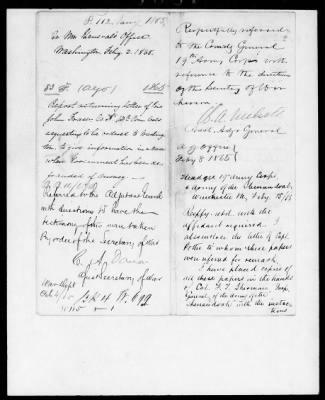 P. 112, Camy 1865,
Adj. General's Office
Washington Feby 2. 1865.
53 F. (A.G.O.) 1865
Report returning letter of
John Fraser Co. A.
requesting to be ordered to Washing
ton, to give information in a case
where Government has been de-
frauded of money —
Returned to the Adjutant General
with directions to have the
testimony of this man taken
By order of the Secretary of War
C. A. Dana
Asst Secretary of War
War Dept
Respectfully referred
to the Comdg General
19th Army Corps with
reference to the direction
of the Secretary of War
hereon.
Asst. Adjt General
A. G. Office
Feby 8 1865
Headqrs 19 Army Corps,
Army of the Shenandoah,
Winchester Va, Feby 15/65
Respfy retd. with the
affidavit required
also encloses the letter of Capt.
Potter to whom these papers
were referred for remark.
I have placed copies of
all these papers in the hands
of Col. F. T. Sherman, Insp.
General, of the army of the
Shenandoah with the instruc
tions